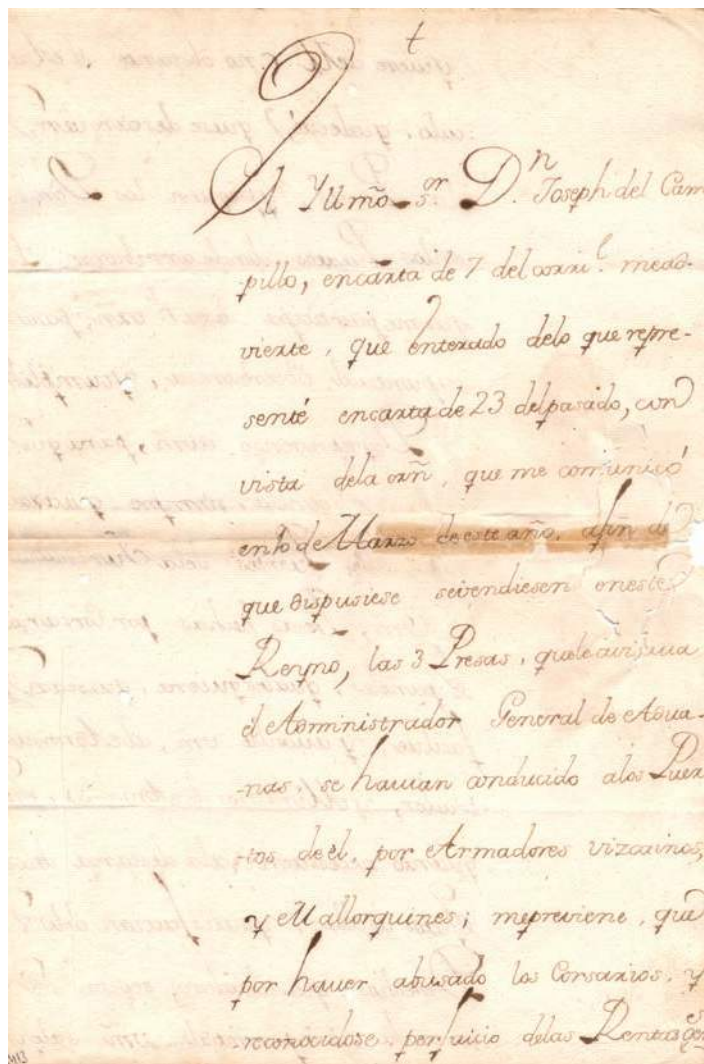 †
El Yllmõ. sor. Dn. Joseph del Cam
pillo, encarta de 7 del corrite. mead-
vierte, que enterado delo que repre-
senté encarta de 23 delpasado, con
vista dela orñ, que me comunicó
en 10 de Marzo de este año, afin de
que dispusiese sevendiesen eneste
Reyno, las 3 Presas, queleavisava
el Administrador General de Adua-
-nas, se havian conducido alos Puer
-tos de él, por Armadores vizcainos,
y Mallorquines; mepreviene, que
por haver abusado los Corsarios, y
reconocidose perjuicio delas Rentas Gen